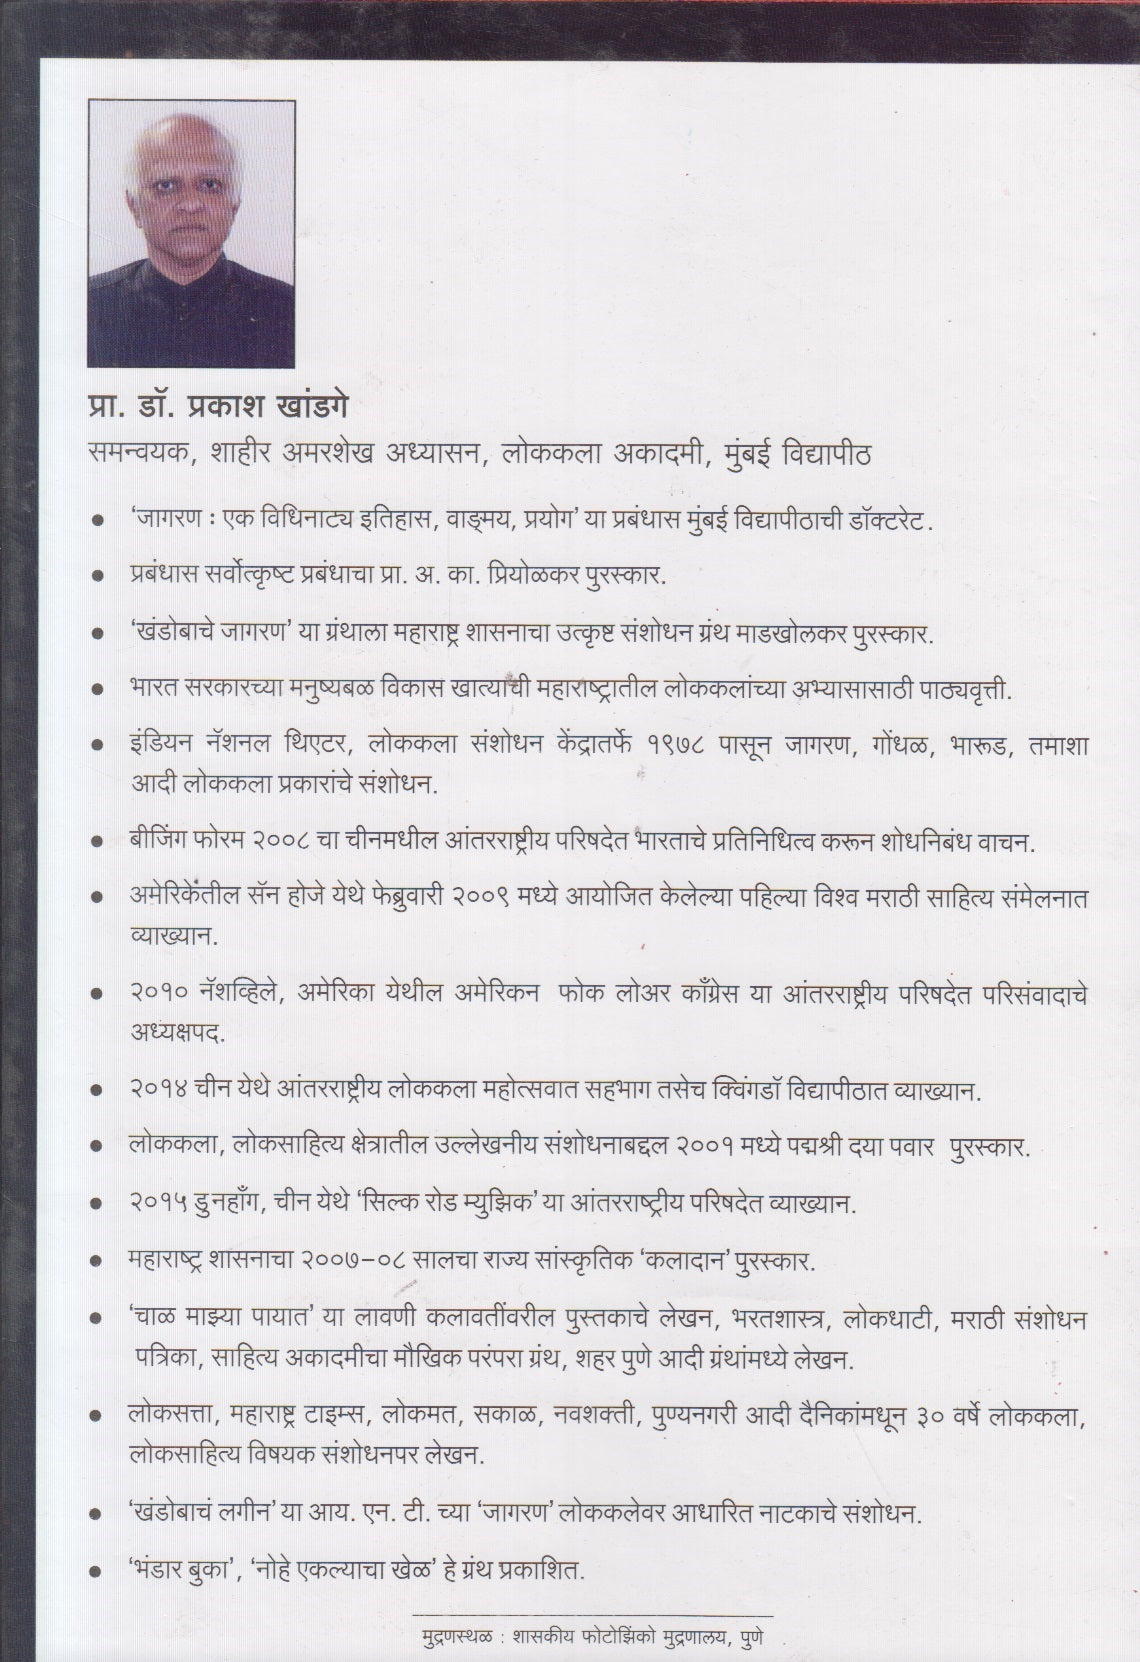 प्रा. डॉ. प्रकाश खांडगे
समन्वयक, शाहीर अमरशेख अध्यासन, लोककला अकादमी, मुंबई विद्यापीठ
● ‘जागरण : एक विधिनाट्य इतिहास, वाङ्मय, प्रयोग’ या प्रबंधास मुंबई विद्यापीठाची डॉक्टरेट.
● प्रबंधास सर्वोत्कृष्ट प्रबंधाचा प्रा. अ. का. प्रियोळकर पुरस्कार.
● ‘खंडोबाचे जागरण’ या ग्रंथाला महाराष्ट्र शासनाचा उत्कृष्ट संशोधन ग्रंथ माडखोलकर पुरस्कार.
● भारत सरकारच्या मनुष्यबळ विकास खात्याची महाराष्ट्रातील लोककलांच्या अभ्यासासाठी पाठ्यवृत्ती.
● इंडियन नॅशनल थिएटर, लोककला संशोधन केंद्रातर्फे १९७८ पासून जागरण, गोंधळ, भारूड, तमाशा
आदी लोककला प्रकारांचे संशोधन.
● बीजिंग फोरम २००८ चा चीनमधील आंतरराष्ट्रीय परिषदेत भारताचे प्रतिनिधित्व करून शोधनिबंध वाचन.
● अमेरिकेतील सॅन होजे येथे फेब्रुवारी २००९ मध्ये आयोजित केलेल्या पहिल्या विश्व मराठी साहित्य संमेलनात
व्याख्यान.
● २०१० नॅशव्हिले, अमेरिका येथील अमेरिकन फोक लोअर काँग्रेस या आंतरराष्ट्रीय परिषदेत परिसंवादाचे
अध्यक्षपद.
● २०१४ चीन येथे आंतरराष्ट्रीय लोककला महोत्सवात सहभाग तसेच क्विंगडॉ विद्यापीठात व्याख्यान.
● लोककला, लोकसाहित्य क्षेत्रातील उल्लेखनीय संशोधनाबद्दल २००१ मध्ये पद्मश्री दया पवार पुरस्कार.
● २०१५ डुनहाँग, चीन येथे ‘सिल्क रोड म्युझिक’ या आंतरराष्ट्रीय परिषदेत व्याख्यान.
● महाराष्ट्र शासनाचा २००७–०८ सालचा राज्य सांस्कृतिक ‘कलादान’ पुरस्कार.
● ‘चाळ माझ्या पायात’ या लावणी कलावतींवरील पुस्तकाचे लेखन, भरतशास्त्र, लोकधाटी, मराठी संशोधन
पत्रिका, साहित्य अकादमीचा मौखिक परंपरा ग्रंथ, शहर पुणे आदी ग्रंथांमध्ये लेखन.
● लोकसत्ता, महाराष्ट्र टाइम्स, लोकमत, सकाळ, नवशक्ती, पुण्यनगरी आदी दैनिकांमधून ३० वर्षे लोककला,
लोकसाहित्य विषयक संशोधनपर लेखन.
● ‘खंडोबाचं लगीन’ या आय. एन. टी. च्या ‘जागरण’ लोककलेवर आधारित नाटकाचे संशोधन.
● ‘भंडार बुका’, ‘नोहे एकल्याचा खेळ’ हे ग्रंथ प्रकाशित.
मुद्रणस्थळ : शासकीय फोटोझिंको मुद्रणालय, पुणे